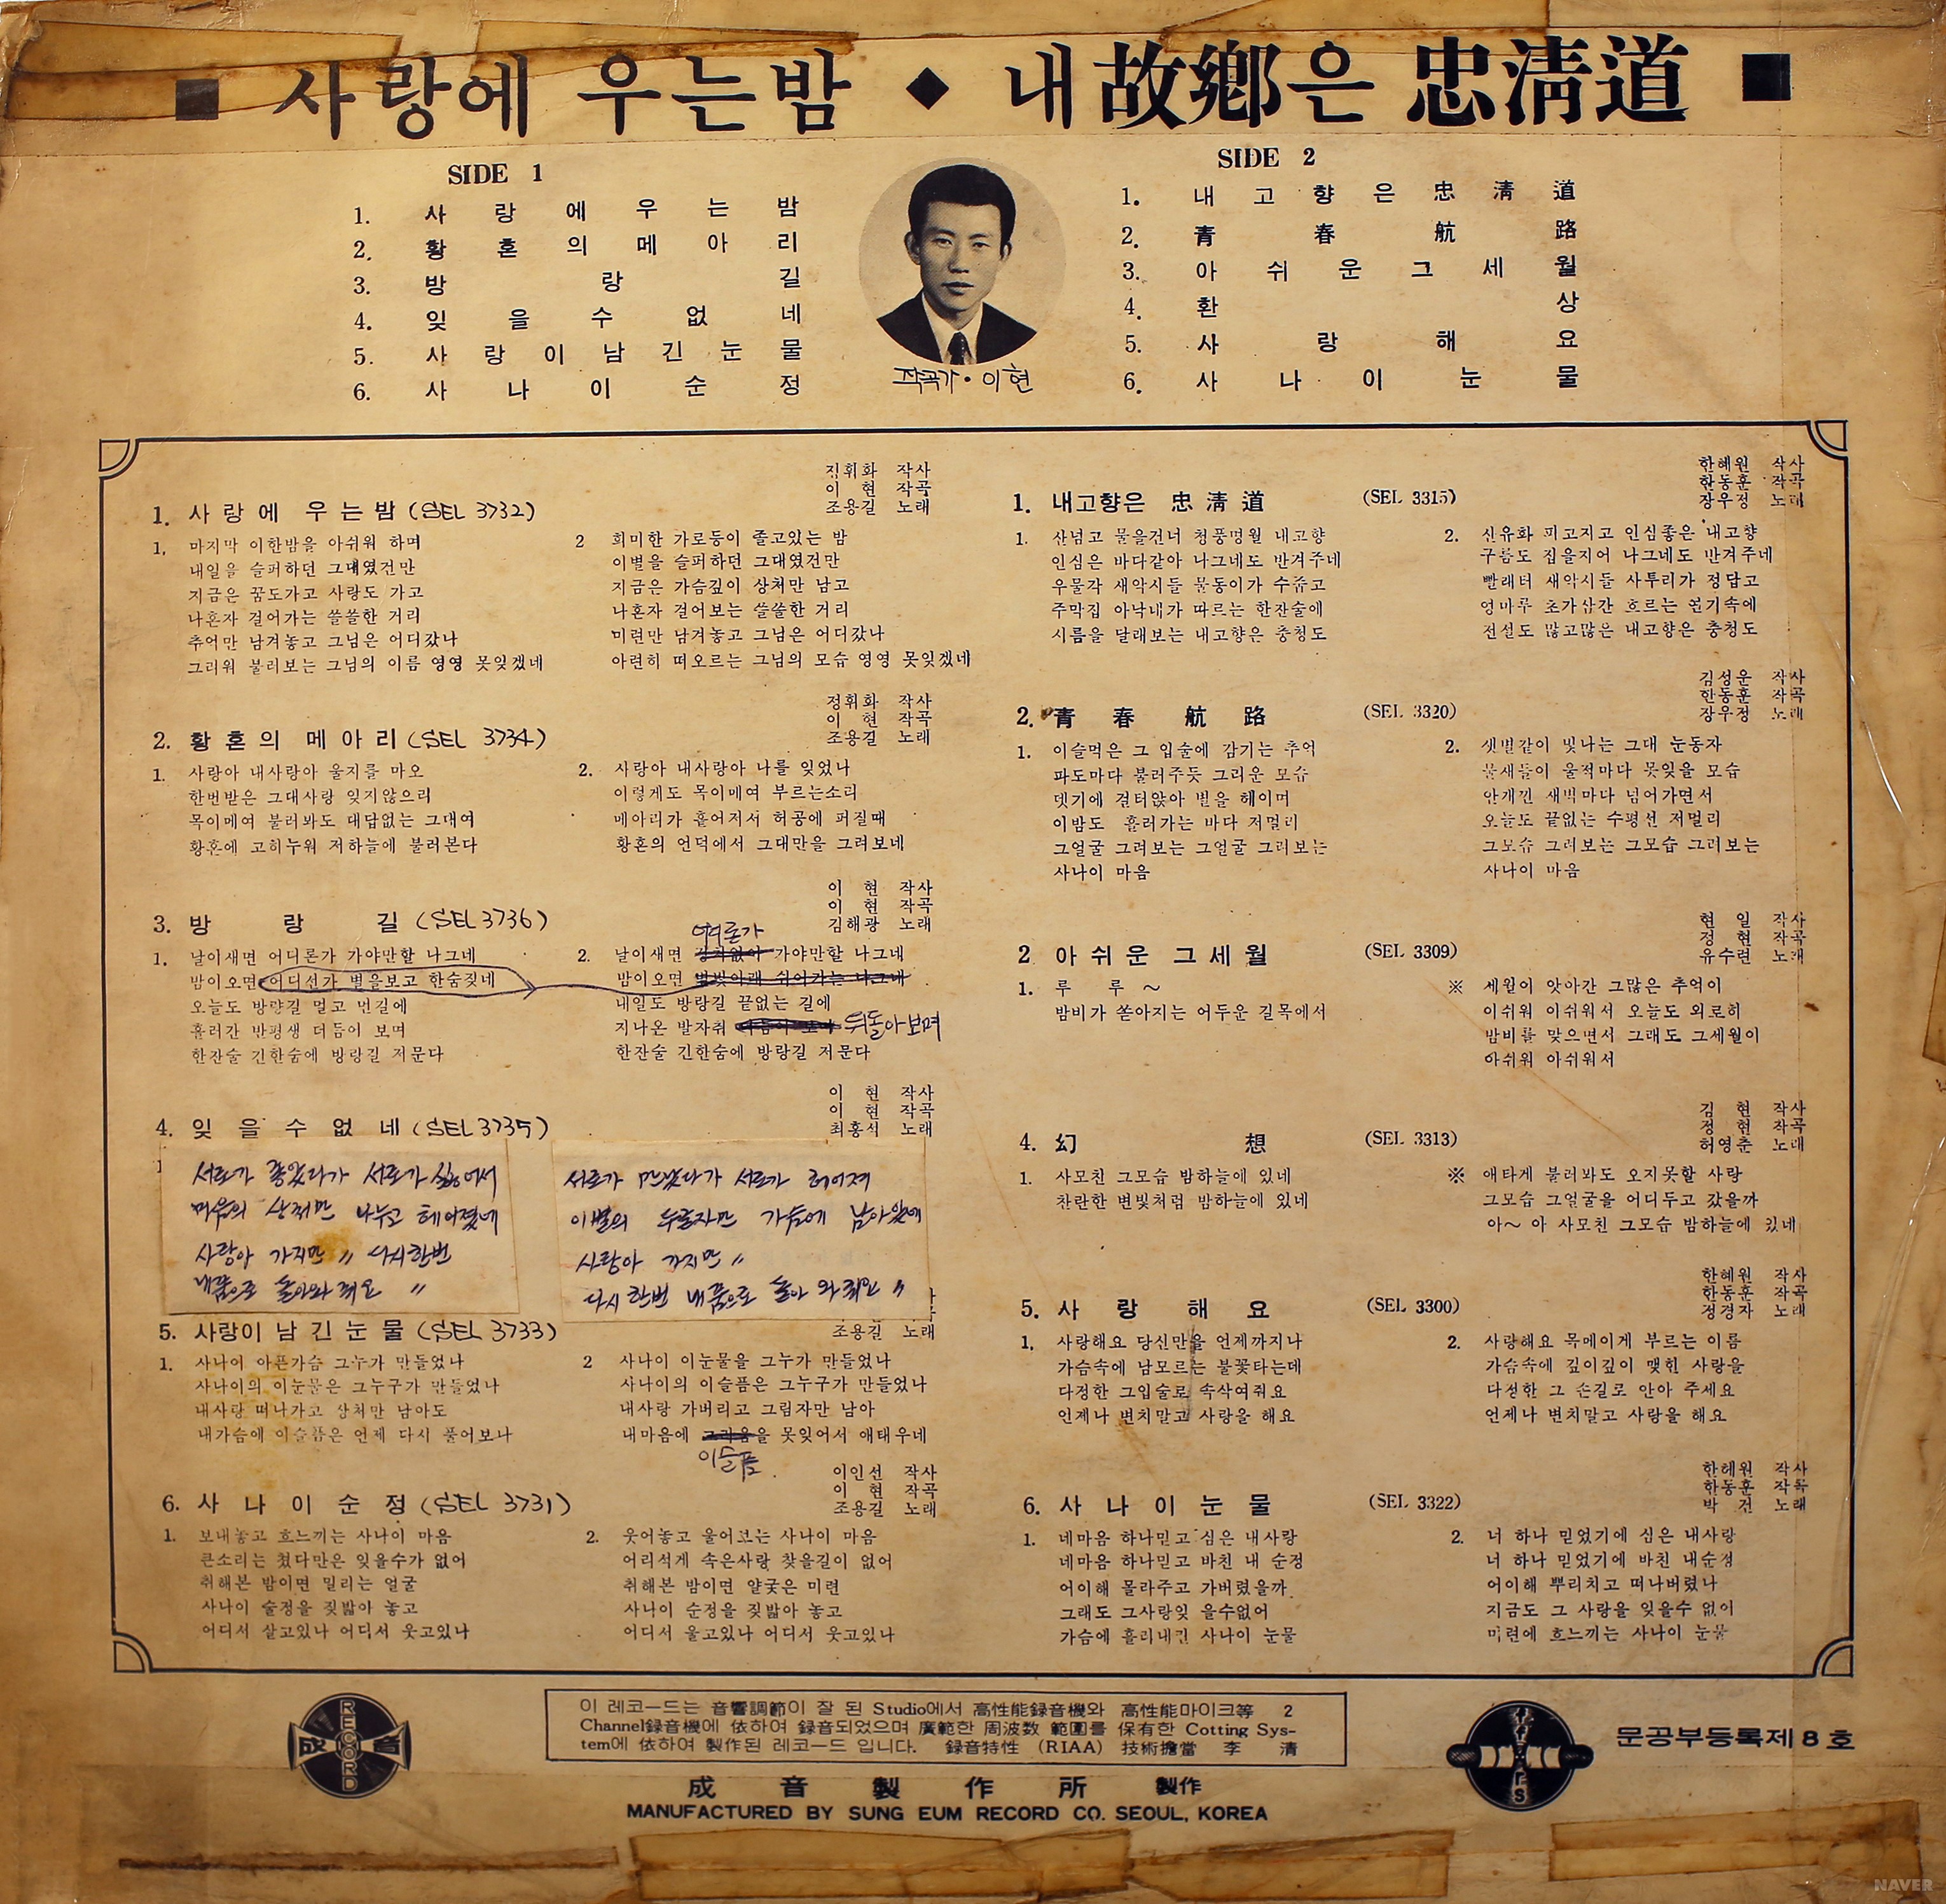 ■ 사랑에 우는밤 ◆ 내故鄕은 忠淸道 ■
SIDE 1
1. 사랑에우는밤
2. 黃혼의메아리
3. 방랑길
4. 잊을수없네
5. 사랑이남긴눈물
6. 사나이순정
작곡가·이현
SIDE 2
1. 내고향은忠淸道
2. 靑春航路
3. 아쉬운그세월
4. 환상
5. 사랑해요
6. 사나이눈물
1. 사랑에 우는밤 (SEL 3732)
휘화 작사
이 현 작곡
조용길 노래
1. 마지막 이한밤을 아쉬워 하며
내일을 슬퍼하던 그대였건만
지금은 꿈도가고 사랑도 가고
나혼자 걸어가는 쓸쓸한 거리
추억만 남겨놓고 그님은 어디갔나
그리워 불러보는 그님의 이름 영영 못잊겠네
2 희미한 가로등이 졸고있는 밤
이별을 슬퍼하던 그대였건만
지금은 가슴깊이 상처만 남고
나혼자 걸어보는 쓸쓸한 거리
미련만 남겨놓고 그님은 어디갔나
아련히 떠오르는 그님의 모습 영영 못잊겠네
2. 황혼의 메아리 (SEL 3734)
정휘화 작사
이 현 작곡
조용길 노래
1. 사랑아 내사랑아 울지를 마오
한번받은 그대사랑 잊지않으리
목이메여 불러봐도 대답없는 그대여
황혼에 고히누워 저하늘에 불러본다
2. 사랑아 내사랑아 나를 잊었나
이렇게도 목이메여 부르는소리
메아리가 흩어저서 허공에 퍼질때
황혼의 언덕에서 그대만을 그려보네
3. 방랑길 (SEL 3736)
이 현 작사
이 현 작곡
김해광 노래
1. 날이새면 어디론가 가야만할 나그네
밤이오면 어디선가 별을보고 한숨짖네
오늘도 방랑길 멀고 먼길에
흘러간 반평생 더듬이 보며
한잔술 긴한숨에 방랑길 저문다
2. 날이새면 정처없이 가야만할 나그네
밤이오면 별빛아래 쉬어가는 나그네
내일도 방랑길 끝없는 길에
지나온 발자취 뒤돌아보며
한잔술 긴한숨에 방랑길 저문다
4. 잊을 수 없네 (SEL 3735)
이 현 작사
이 현 작곡
최홍식 노래
서로가 좋았다가 서로가 싫어서
마음의 상처만 나누고 헤어졌네
사랑아 가지만 〃 다시한번
내품으로 돌아와 줘요 〃
서로가 만났다가 서로가 헤어져
이별의 두글자만 가슴에 남아있네
사랑아 가지만 〃
다시 한번 내품으로 돌아 와줘요 〃
5. 사랑이 남긴눈물 (SEL 3733)
조용길 노래
1. 사나이 아픈가슴 그누가 만들었나
사나이의 이눈물은 그누구가 만들었나
내사랑 떠나가고 상처만 남아도
내가슴에 이슬픔은 언제 다시 풀어보나
2 사나이 이눈물을 그누가 만들었나
사나이의 이슬픔은 그누구가 만들었나
내사랑 가버리고 그림자만 남아
내마음에 그리움을 못잊어서 애태우네
이슬픔
6. 사나이순정 (SEL 3731)
이인선 작사
이 현 작곡
조용길 노래
1. 보내놓고 흐느끼는 사나이 마음
큰소리는 쳤다만은 잊을수가 없어
취해본 밤이면 밀리는 얼굴
사나이 술정을 짖밟아 놓고
어디서 살고있나 어디서 웃고있나
2. 웃어놓고 울어보는 사나이 마음
어리석게 속은사랑 찾을길이 없어
취해본 밤이면 얄궂은 미련
사나이 순정을 짖밟아 놓고
어디서 울고있나 어디서 웃고있나
1. 내고향은 忠淸道 (SEL 3315)
한혜원 작사
한동훈 작곡
장우정 노래
1. 산넘고 물을건너 청풍명월 내고향
인심은 바다같아 나그네도 반겨주네
우물각 새악시들 물동이가 수줍고
주막집 아낙내가 따르는 한잔술에
시름을 달래보는 내고향은 충청도
2. 신유화 피고지고 인심좋은 내고향
구름도 집을지어 나그네도 반겨주네
빨래터 새악시들 사투리가 정답고
엉마루 초가삼간 흐르는 연기속에
전설도 많고많은 내고향은 충청도
2. 靑春航路 (SEL 3320)
김성운 작사
한동훈 작곡
장우정 노래
1. 이슬먹은 그 입술에 감기는 추억
파도마다 불러주듯 그리운 모습
뎃기에 걸터앉아 별을 헤이며
이밤도 흘러가는 바다 저멀리
그얼굴 그려보는 그얼굴 그려보는
사나이 마음
2. 샛별같이 빛나는 그대 눈동자
물새들이 울적마다 못잊을 모습
안개낀 새벽마다 넘어가면서
오늘도 끝없는 수평선 저멀리
그모습 그려보는 그모습 그려보는
사나이 마음
2 아쉬운 그세월 (SEL 3309)
현 일 작사
정 현 작곡
유수련 노래
1. 루 루 ~
밤비가 쏟아지는 어두운 길목에서
※ 세월이 앗아간 그많은 추억이
아쉬워 아쉬워서 오늘도 외로히
밤비를 맞으면서 그래도 그세월이
아쉬워 아쉬워서
4. 幻想 (SEL 3313)
김 현 작사
정 현 작곡
허영춘 노래
1. 사모친 그모습 밤하늘에 있네
찬란한 변빛처럼 밤하늘에 있네
※ 애타게 불러봐도 오지못할 사랑
그모습 그얼굴을 어디두고 갔을까
아~ 아 사모친 그모습 밤하늘에 있네
5. 사랑해요 (SEL 3300)
한혜원 작사
한동훈 작곡
정경자 노래
1. 사랑해요 당신만을 언제까지나
가슴속에 남모르는 불꽃타는데
다정한 그입술로 속삭여줘요
언제나 변치말고 사랑을 해요
2. 사랑해요 목메이게 부르는 이름
가슴속에 깊이깊이 맺힌 사랑을
다정한 그 손길로 안아 주세요
언제나 변치말고 사랑을 해요
6. 사나이눈물 (SEL 3322)
한혜원 작사
한동훈 작곡
박 건 노래
1. 네마음 하나믿고 심은 내사랑
네마음 하나믿고 바친 내 순정
어이해 몰라주고 가버렸을까.
그래도 그사랑잊 을수없어
가슴에 흘러내린 사나이 눈물
2. 너 하나 믿었기에 심은 내사랑
너 하나 믿었기에 바친 내순정
어이해 뿌리치고 떠나버렸나
지금도 그 사랑을 잊을수 없어
미련에 흐느끼는 사나이 눈물
成音
RECORD
이 레코ー드는 音響調節이 잘 된 Studio에서 高性能録音機와 高性能마이크等 2
Channel録音機에 依하여 録音되었으며 廣範한 周波数 範圍를 保有한 Cotting Sys-
tem에 依하여 製作된 레코ー드 입니다. 録音特性 (RIAA) 技術擔當 李 淸
成音製作所 製作
MANUFACTURED BY SUNG EUM RECORD CO. SEOUL, KOREA
문공부등록제8호
NAVER